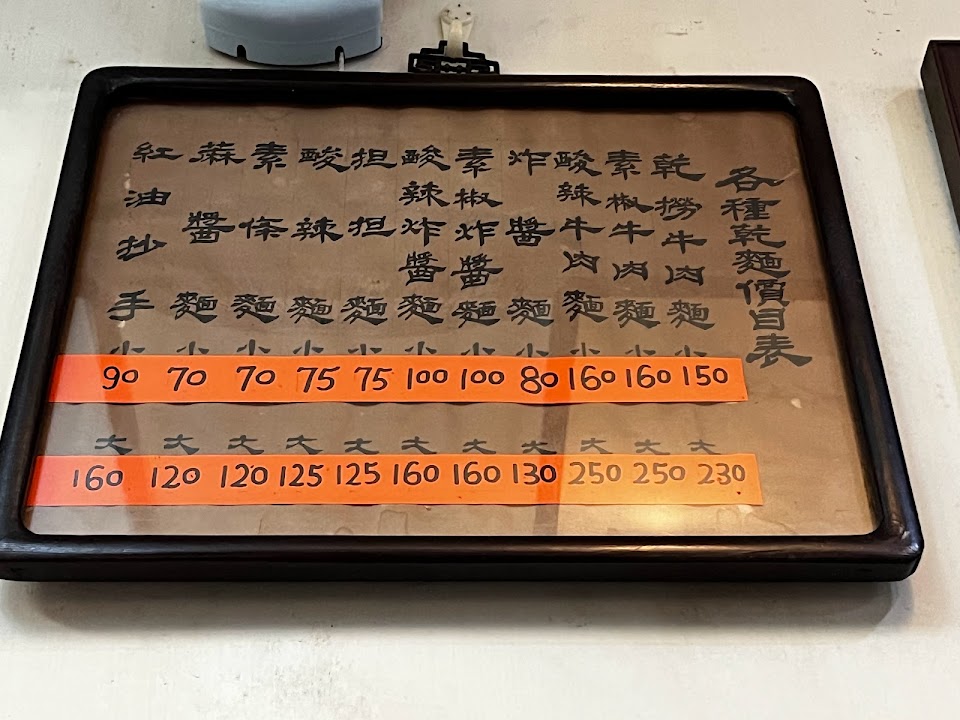 各種乾麵價目表
乾撈牛肉麵 小 150 大 230
素椒牛肉麵 小 160 大 250
酸辣牛肉麵 小 160 大 250
炸醬麵 小 80 大 130
素椒炸醬麵 小 100 大 160
酸辣炸醬麵 小 100 大 160
担担麵 小 75 大 125
酸辣麵 小 75 大 125
素條麵 小 70 大 120
蔴醬麵 小 70 大 120
紅油抄手 小 90 大 160